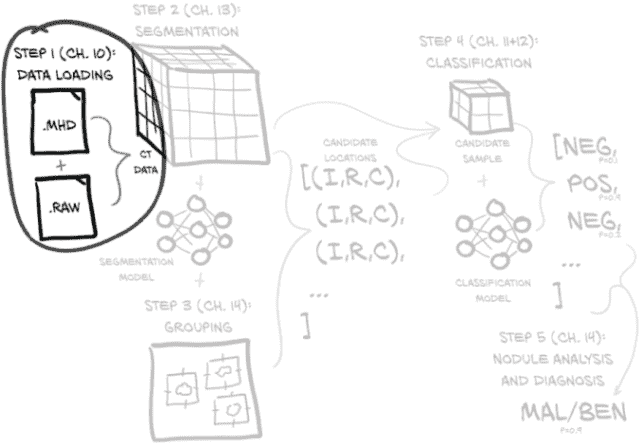 STEP 1 (CH. 10):
DATA LOADING
.MHD
+
.RAW
CT
DATA
STEP 2 (CH. 13):
SEGMENTATION
+
SEGMENTATION
MODEL
+
STEP 3 (CH. 14):
GROUPING
CANDIDATE
LOCATIONS
[(I,R,C),
(I,R,C),
(I,R,C),
...
]
STEP 4 (CH. 11+12):
CLASSIFICATION
CANDIDATE
SAMPLE
+
CLASSIFICATION
MODEL
[NEG,
P=0.1
POS,
P=0.9
NEG,
P=0.2
...
]
STEP 5 (CH. 14):
NODULE ANALYSIS
AND DIAGNOSIS
MAL/BEN
P=0.9